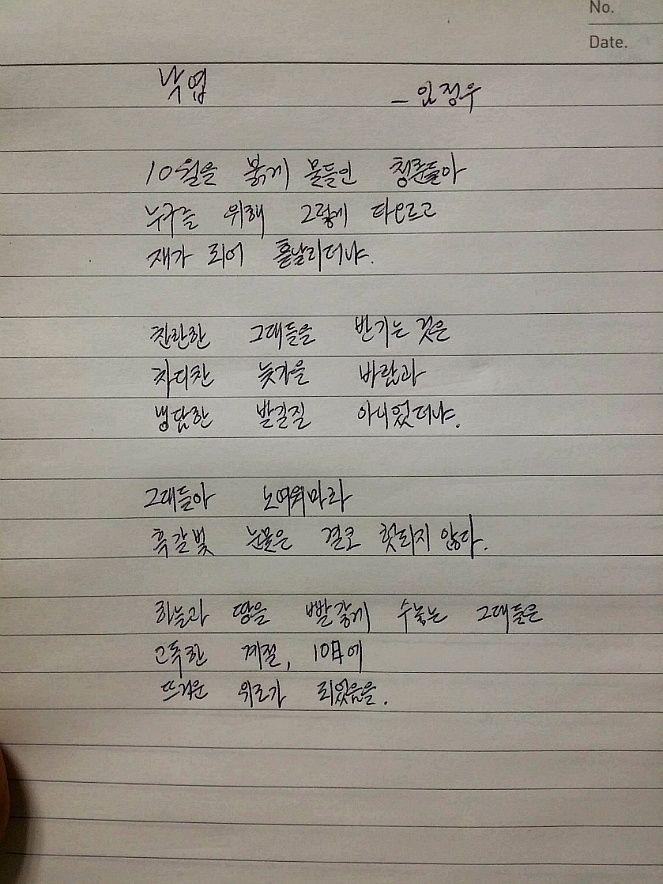 No.
Date.
낙엽
- 임정우
10월을 붉게 물들인 청춘들아
누구를 위해 그렇게 타오르고
재가 되어 흩날리더냐.
찬란한 그대들을 반기는 것은
차디찬 늦가을 바람과
냉담한 발길질 아니었더냐.
그대들아 노여워마라
흑갈빛 눈물은 결코 헛되지 않다.
하늘과 땅을 빨갛게 수놓는 그대들은
고독한 계절, 10月에
뜨거운 위로가 되었음을.